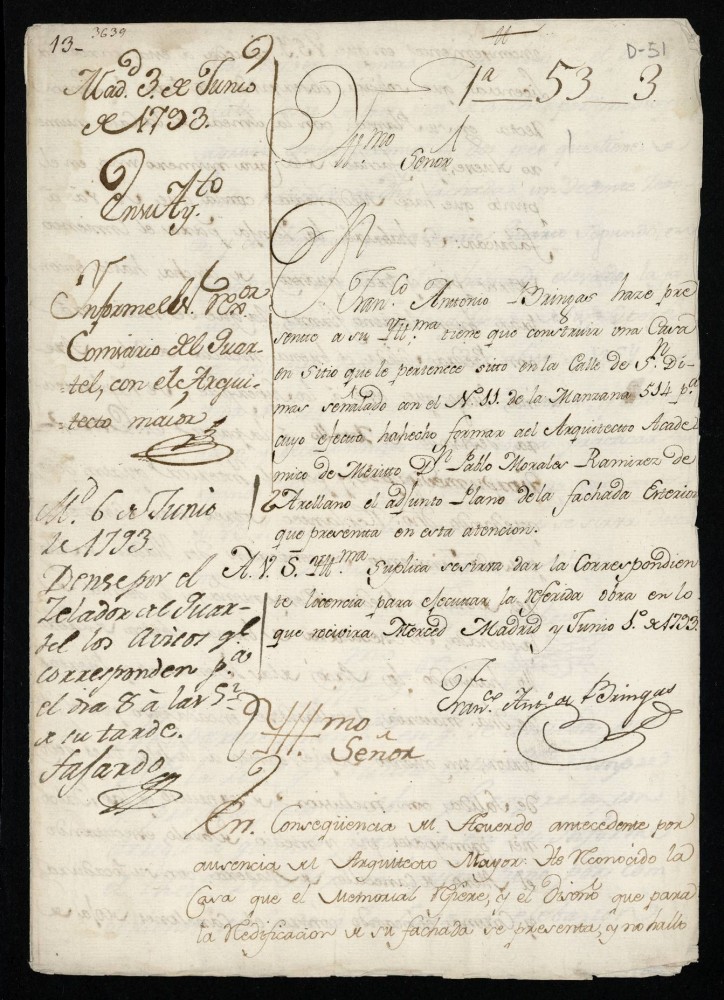 13-
3639
D-51
1ª 53 3
Mad.d 3. de Junio
de 1793.
En su Ay.to
Informe el S.r Rex.or
Comisario del Quar-
tel, con el Arqui-
tecto maior
M.d 6 de Junio
de 1793.
Dense por el
Zelador del Quar-
tel los avisos q.e
corresponden p.a
el dia 8 à las 5.
de su tarde.
Fajardo
Ill.mo
Señor
D.n
Fran.co Antonio Bringas haze pre
sente a su Yll.ma tiene que construir una Casa
en Sitio que le pertenece sito en la Calle de S.n Di-
mas señalado con el N.º 11. de la Manzana 514 p.a
cuyo efecto ha hecho formar àel Arquitecto Acade
mico de Merito D.n Pablo Morales Ramirez de
Arellano el adjunto Plano de la fachada Exterior
que presenta en esta atencion.
A. V. S. Yll.ma Suplica se sirva dar la Correspondien
te licencia para efecutar la referida obra en lo-
que recivira Merced Madrid y Junio 1.º de 1793.
Fran.co Ant.o de Bringas
Ill.mo
Señor
En. Conseqüencia del Acuerdo antecedente por
ausencia del Arquitecto Mayor: He Reconocido la
Casa que el Memorial refiere, y el diseño que para
la Redificacion de su fachada se presenta, y no hallo